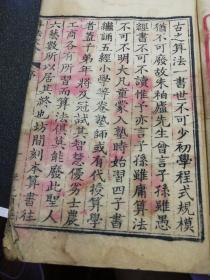 古之算法一書世不可少初學程式規模
猶不可廢故朱柏盧先生曾言子孫雖愚
經書不可不讀惟予亦言子孫雖庸算法
不可不明大凡童蒙入塾時始習四子書
繼誦五經小學等卷塾師或有代授算學
者蓋子弟年將冠試其智慧優劣士農
工商各有所習而算法俱莫能廢此聖人
六藝數所以居其終也坊間刻本算書往
序